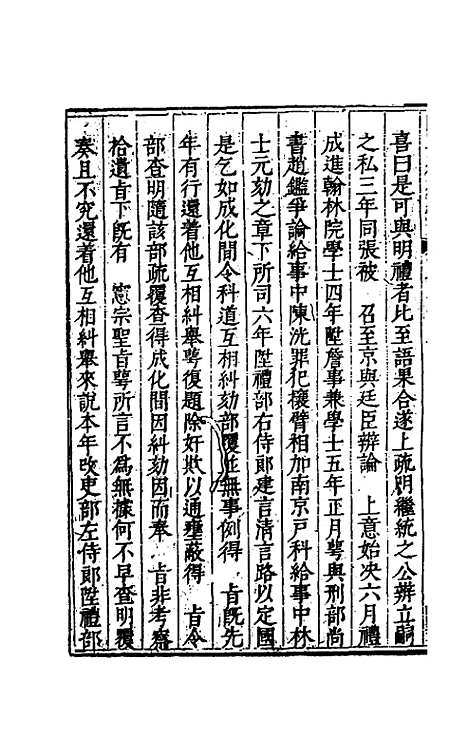 喜曰是可與明禮者比至語果合遂上疏明繼統之公辨立嗣
之私三年同張被　召至京與廷臣辨論　上意始決六月禮
成進翰林院學士四年陞詹事兼學士五年正月萼與刑部尚
書趙鑑爭論給事中陳洸罪犯攘臂相加南京戶科給事中林
士元劾之章下所司六年陞禮部右侍郎建言清言路以定國
是乞如成化間令科道互相糾劾部覆此無事例得　旨旣先
年有行還着他互相糾舉萼復題除奸欺以通壅蔽得　旨令
部查明隨該部疏覆查得成化間因糾劾因而奉　旨非考察
拾遺旨下旣有　憲宗聖旨萼所言不爲無據何不早查明覆
奏且不究還着他互相糾舉來說本年改吏部左侍郎陞禮部